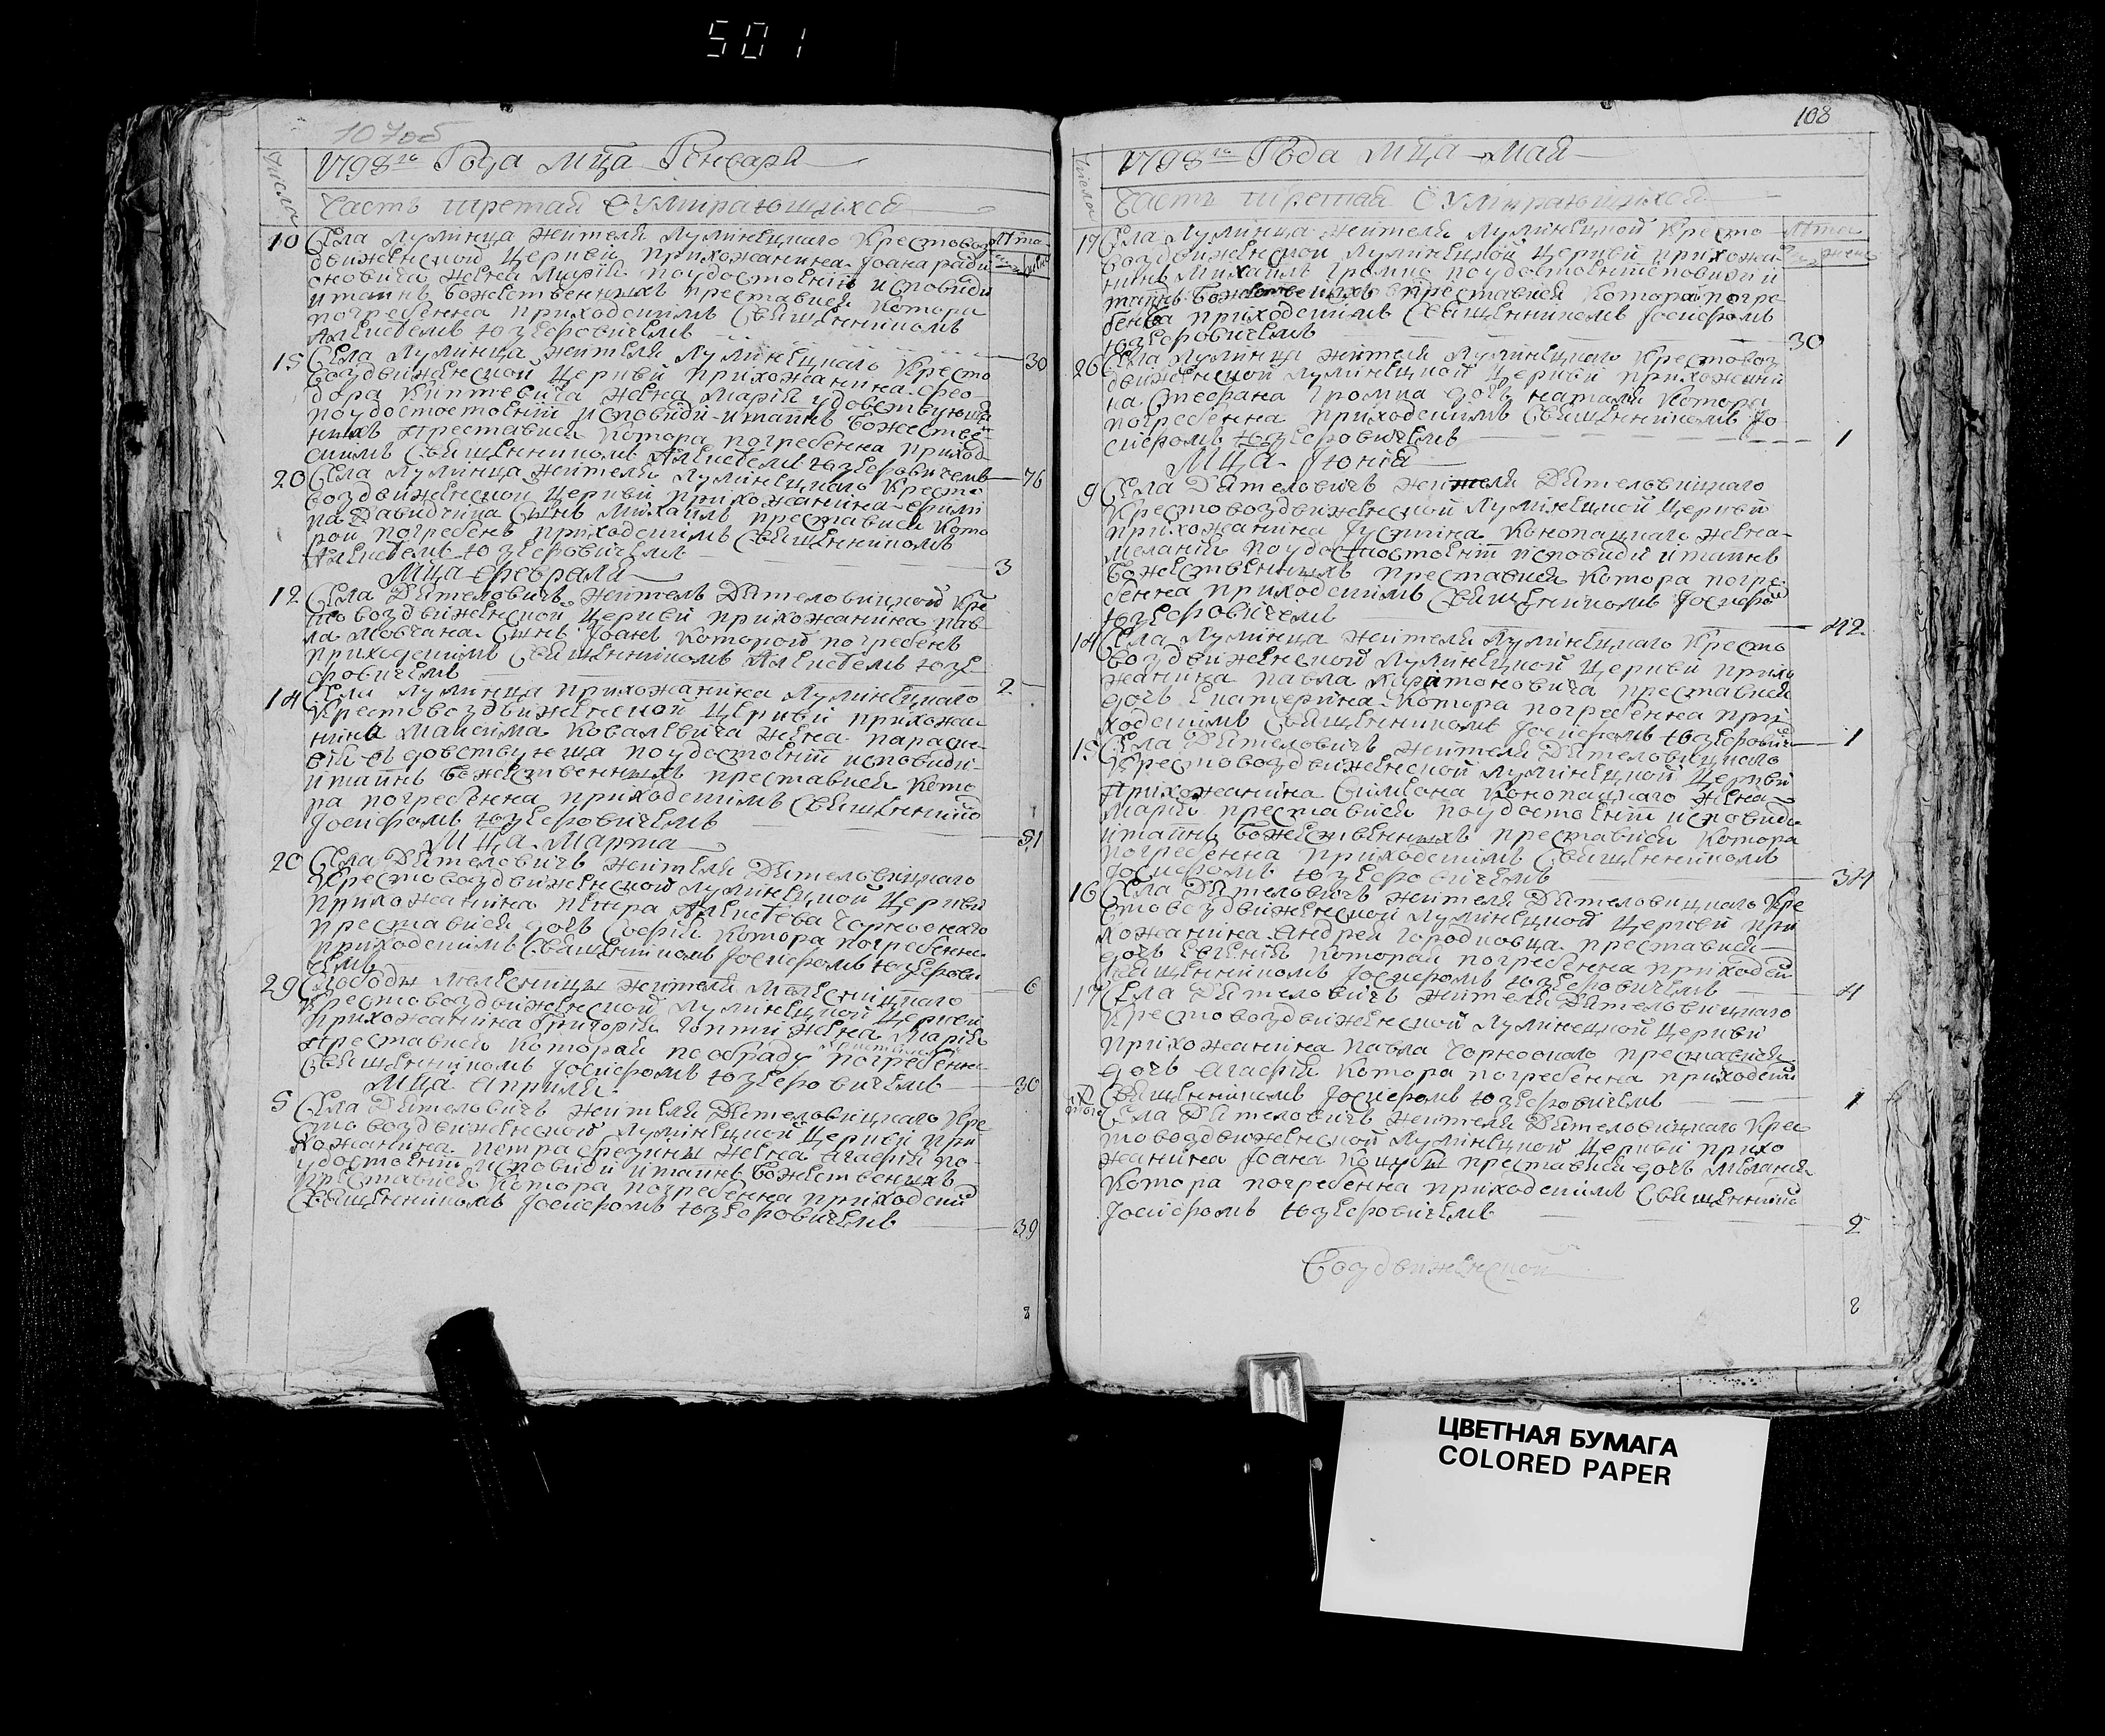 501
107об
1798го Года мца Генваря
Числа
Часть третая о умирающихся
10 Села Лулинца жителя Лулинецкаго Крестовоз
Лѣта
движенской Церкви прихожанина Іоана Ради
оновича жена Марія поудостоенію исповѣди
и таинъ божественныхъ преставися Котора
погребенна приходскимъ Священникомъ
Алексѣемъ Юзефовичемъ
30
15 Села Лулинца жителя Лулинецкаго Кресто
воздвиженской Церкви прихожанина Фео
дора жена Марія удовствующая
поудостостоеніи исповѣди и таинъ божестве
нихъ преставися Котора погребенна приход
скимъ Священникомъ Алексѣемъ Юзефовичемъ
76
20 Села Лулинца жителя Лулинецкаго Кресто
воздвиженской Церкви прихожанина Фили
па Давидчика Сынъ Михаилъ преставися Кото
рой погребенъ приходскимъ Священникомъ
Алексѣемъ Юзефовичемъ
3
Мца Февраля
12 Села Дятеловичъ житель Дятеловицкой Кре
стовоздвиженской Церкви прихожанина Пав
ла Мовчана Сынъ Іоанъ Которой погребенъ
приходскимъ Священникомъ Алексѣемъ Юзе
фовичемъ
2
14 Села Лулинца прихожанина Лулинецкаго
Крестовоздвиженской Церкви прихожа
нина Максима Ковалевича жена Параске
вія вдовствующа поудостоеніи исповѣди
и таинъ божественныхъ преставися Кото
ра погребенна приходскимъ Священнико
Іосифомъ Юзефовичемъ
51
Мца Марта
20 Села Дятеловичъ жителя Дятеловицкаго
Крестовоздвиженской Лулинецкой Церкви
прихожанина Петра Алексѣева Чорноокаго
преставися дочь Софія Котора погребенна
приходскимъ Священникомъ Іосифомъ Юзефови
чемъ
6
29 Слободы жителя
Крестовоздвиженской Лулинецкой Церкви
прихожанина Григорія жена Марія
преставися Которая по обряду погребенна
Священникомъ Іосифомъ Юзефовичемъ
30
Мца Априля
5 Села Дятеловичъ жителя Дятеловицкаго Кре
стовоздвиженской Лулинецкой Церкви при
хожанина Петра жена Агафія по
удостоеніи исповѣди и таинъ божественихъ
преставися Котора погребенна приходски
Священникомъ Іосифомъ Юзефовичемъ
39
8
108
1798го Года мца Мая
Числа
Часть третая о умирающихся
17 Села Лулинца жителя Лулинецкой Кресто
Лѣта
воздвиженской Лулинецкой Церкви прихожа
нинъ Михаилъ Громко поудостоеніи исповѣди и
таинъ божественихъ преставися Которой погре
бенъ приходскимъ Священникомъ Іосифомъ
Юзефовичемъ
30
20 Села Лулинца жителя Лулинецкаго Крестовоз
движенской Лулинецкой Церкви прихожани
на Стефана Громка дочь Наталя Котора
погребенна приходскимъ Священникомъ Іо
сифомъ Юзефовичемъ
1
Мца Юнія
9 Села Дятеловичъ жителя Дятеловицкаго
Крестовоздвиженской Лулинецкой Церкви
прихожанина Іустина Конопацкаго жена
Меланія поудостостоеніи исповѣди и таинъ
божественныхъ преставися Котора погре
бенна приходскимъ Священникомъ Іосифо
Юзефовичемъ
42
14 Села Лулинца жителя Лулинецкаго Кресто
воздвиженской Лулинецкой Церкви прихо
жанина Павла Харитоновича преставися
дочь Екатерина Котора погребенна при
ходскимъ Священникомъ Іосифомъ Юзефовиче
1
15 Села Дятеловичъ жителя Дятеловицкаго
Крестовоздвиженской Лулинецкой Церкви
прихожанина Симеона Конопацкаго жена
Марія преставися поудостоеніи исповѣди
и таинъ божественныхъ преставися Котора
погребенна приходскимъ Священникомъ
Іосифомъ Юзефовичемъ
34
16 Села Дятеловичъ жителя Дятеловицкаго Кре
стовоздвиженской Лулинецкой Церкви при
хожанина Андрея Городковца преставися
дочь Евгенія Которая погребенна приходски
Священникомъ Іосифомъ Юзефовичемъ
4
17 Села Дятеловичъ жителя Дятеловицкаго
Крестовоздвиженской Лулинецкой Церкви
прихожанина Павла Чорноокаго преставися
дочь Агафія Котора погребенна приходски
Священникомъ Іосифомъ Юзефовичемъ
1
Села Дятеловичъ жителя Дятеловицкаго Крес
товоздвиженской Лулинецкой Церкви прихо
жанина Іоана Коцубы преставися дочь Меланія
Котора погребенна приходскимъ Священнико
Іосифомъ Юзефовичемъ
2
Воздвиженской
8
ЦВЕТНАЯ БУМАГА
COLORED PAPER